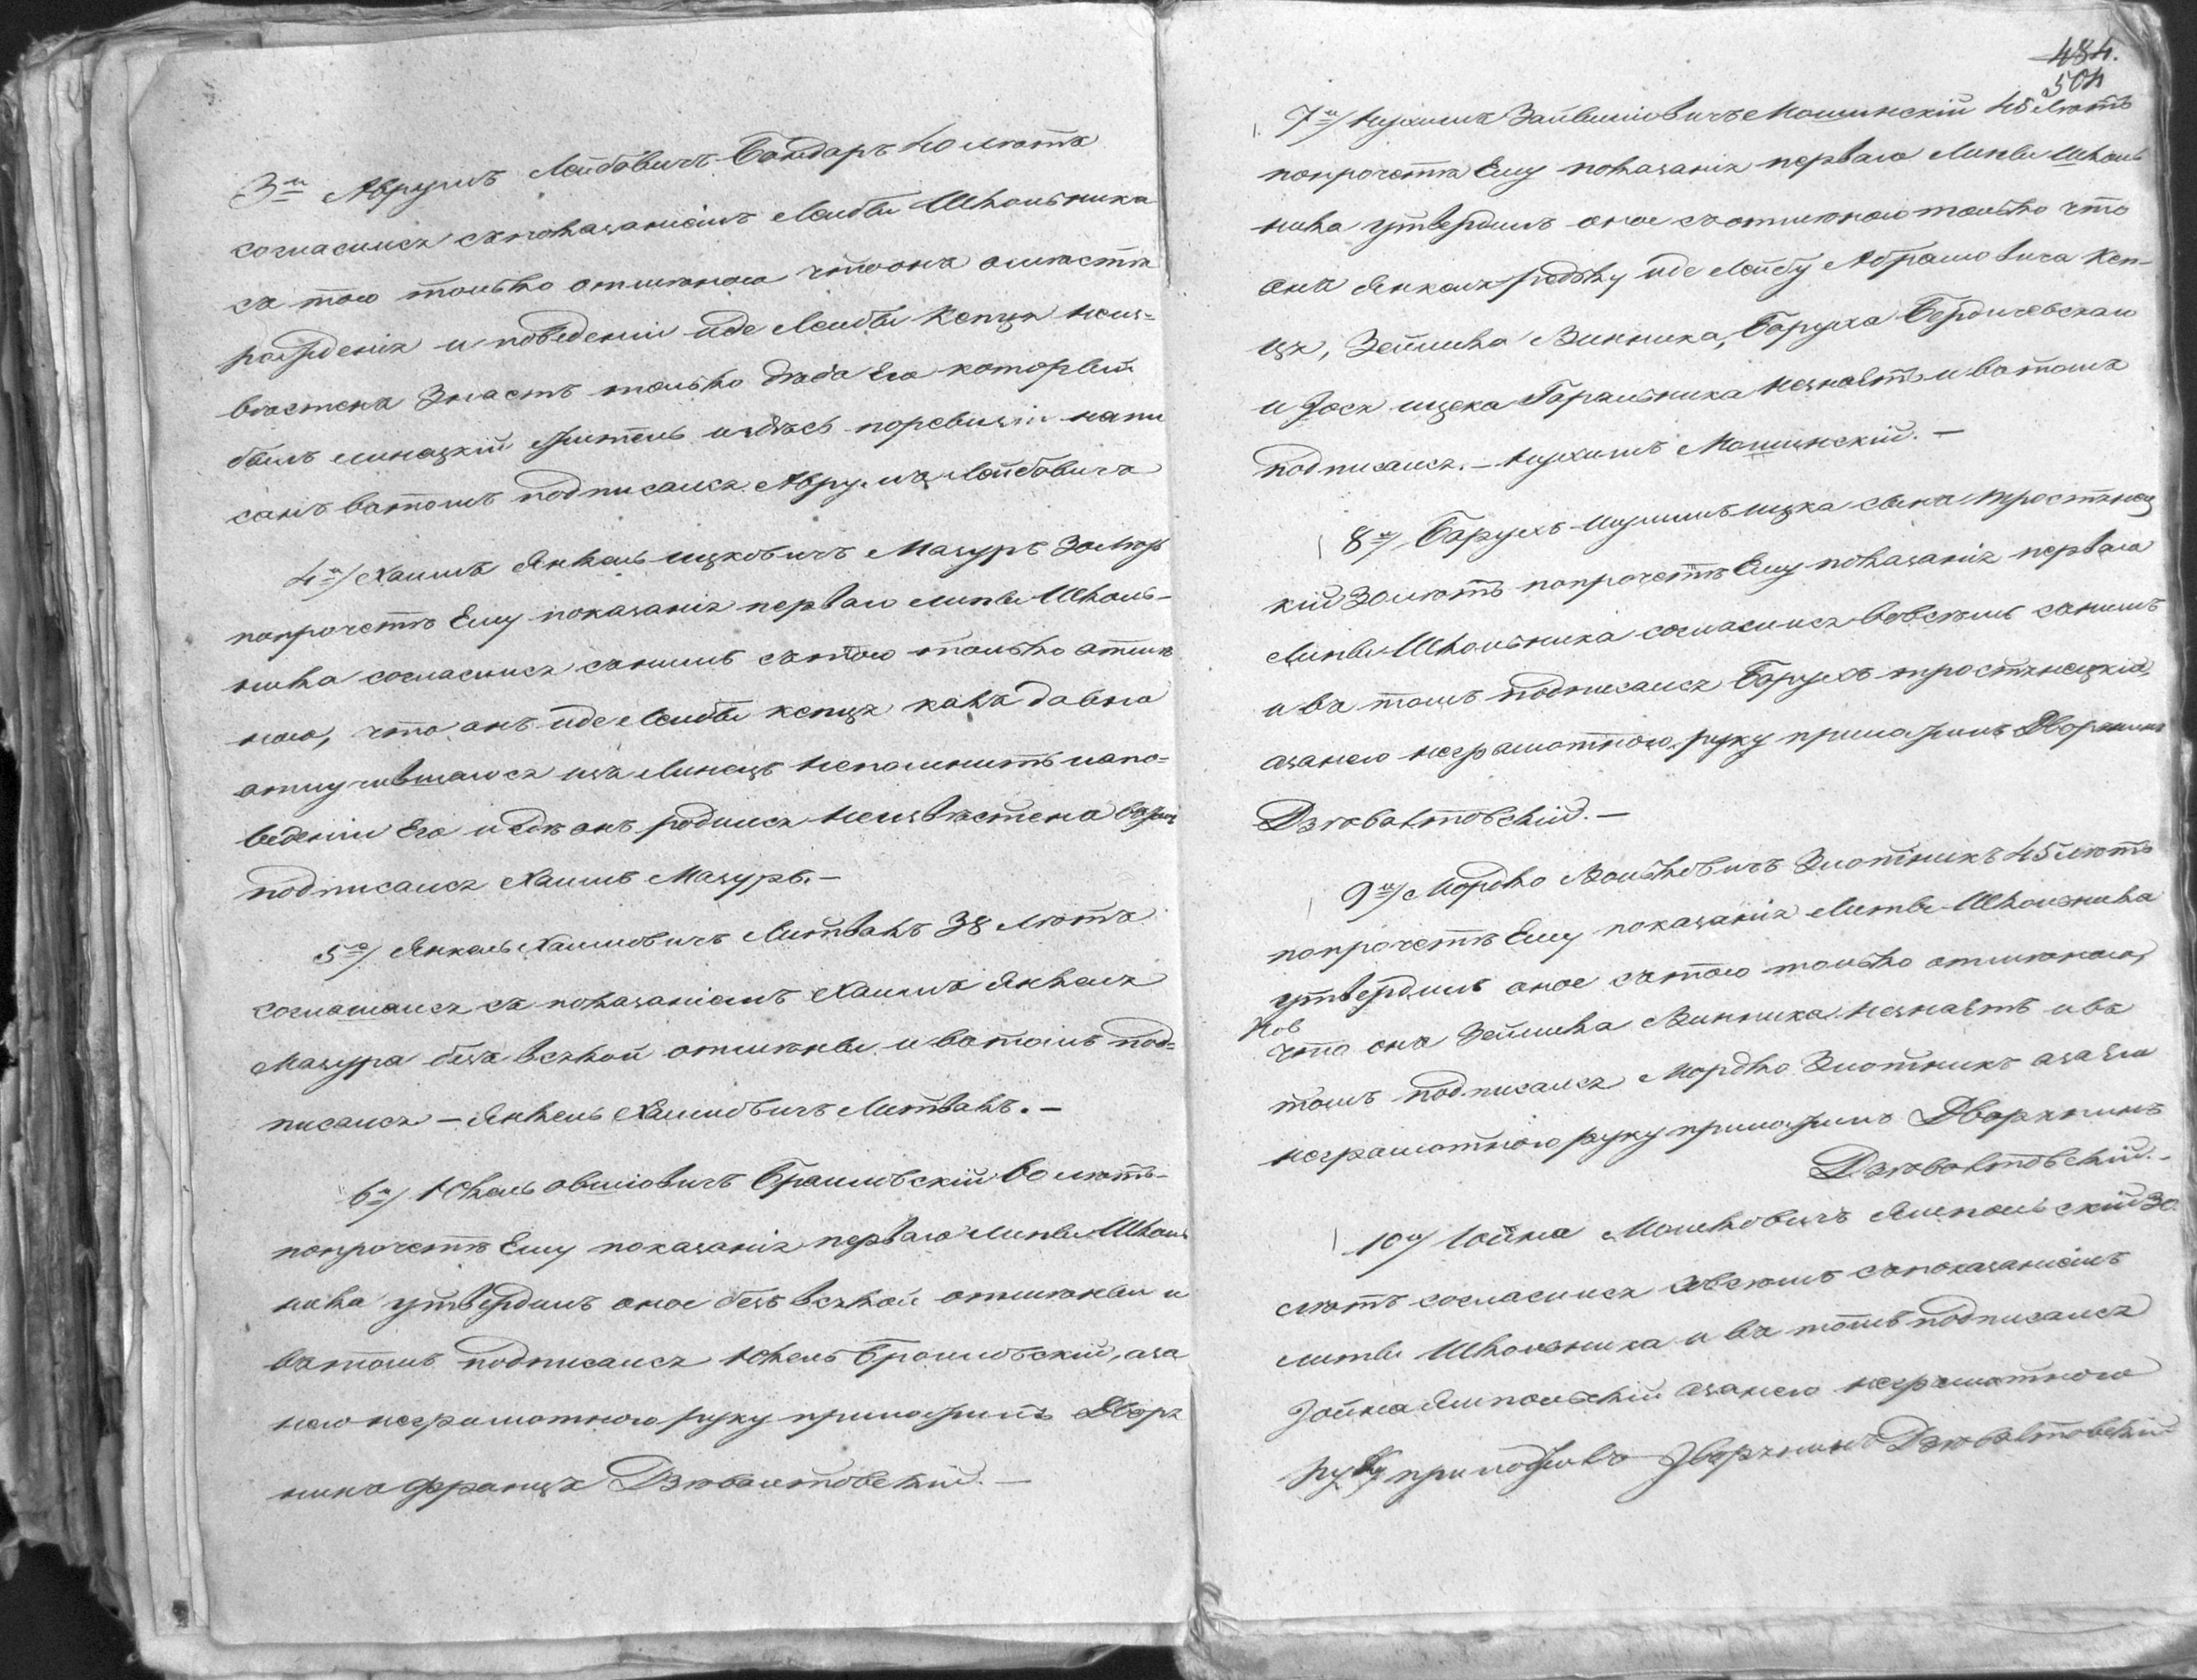 3й Аврумъ Лейбовичъ Бондаръ 40 лѣтъ
согласился съ показаніемъ Лейбы Школьника
съ тою только отмѣною что онъ о мѣстѣ
рожденія и поведеніи Иде Лейбы Копця неиз=
вѣстенъ знаетъ только дѣда Его который
былъ линецкій житель и здѣсь поревизіи напи
санъ вътомъ подписался Аврумъ Лейбовичъ
4й/ Хаимъ Янкель Ицковичъ Мазуръ 30 лѣтъ
попрочетѣ Ему показанія перваго Липы Школь-
ника согласился снимъ стою только отмѣ
ною, что онъ Иде Лейбы копця какъ давно
отлучившагося изъ Линецъ непомнитъ и апо=
веденіи Его и гдѣ онъ родился неизвѣстенъ
подписался Хаимъ Мазуръ.—
5й/ Янкель Хаимовичъ Литвакъ 38 лѣтъ
согласился съ показаніемъ Хаима Янкеля
Мазура безъ всякой отмѣны и вътомъ под=
писался — Янкель Хаимовичъ Литвакъ.—
6й/ Юкель Овшіовичъ Браиловскій 60 лѣтъ-
попрочетѣ Ему показанія перваго Липы Школь
ника утвердилъ оное безъ всякой отмѣны и
вътомъ подписался Юкель Браиловскій, аза
него неграмотнаго руку приложилъ Дворя
нинъ Францъ Дзювалтовскій.—
484.
504
7й/ Нухимъ Зайвшіовичъ Мошинскій 45 лѣтъ
попрочетѣ Ему показанія перваго Липы Школь
ника утвердилъ оное съ отмѣною только что
онъ Янкеля рѣдку Иде Лейбу Абрамовича Коп-
ця, Зейлика Винника, Баруха Бердичевскаго
и Іося ицека Горальника незнаетъ и вътомъ
подписался.— Нухимъ Мошинскій.—
8й/ Барухъ Шулимъ ицка сынъ тростянец
кій 30 лѣтъ попрочетѣ Ему показанія перваго
Липы Школьника согласился вовсемъ сънимъ
и въ томъ подписался Барухъ тростянецкій,
азанего неграмотнаго руку приложилъ Дворянинъ
Дзювалтовскій.—
9й/ Мордко Волковичъ Злотникъ 45 лѣтъ
попрочетѣ Ему показанія Липы Школьника
утвердилъ оное стою только отмѣною,
что онъ Зейлика Винника незнаетъ и въ
томъ подписался Мордко Злотникъ аза Его
неграмотнаго руку приложилъ Дворянинъ
Дзювалтовскій.-
10й/ Іойна Мошковичъ Ямпольскій 30.
лѣтъ согласился вовсемъ съпоказаніемъ
липы Школьника и въ томъ подписался
Іойна Ямпольскій азанего неграмотнаго
руку приложилъ Дворянинъ Дзювалтовскій